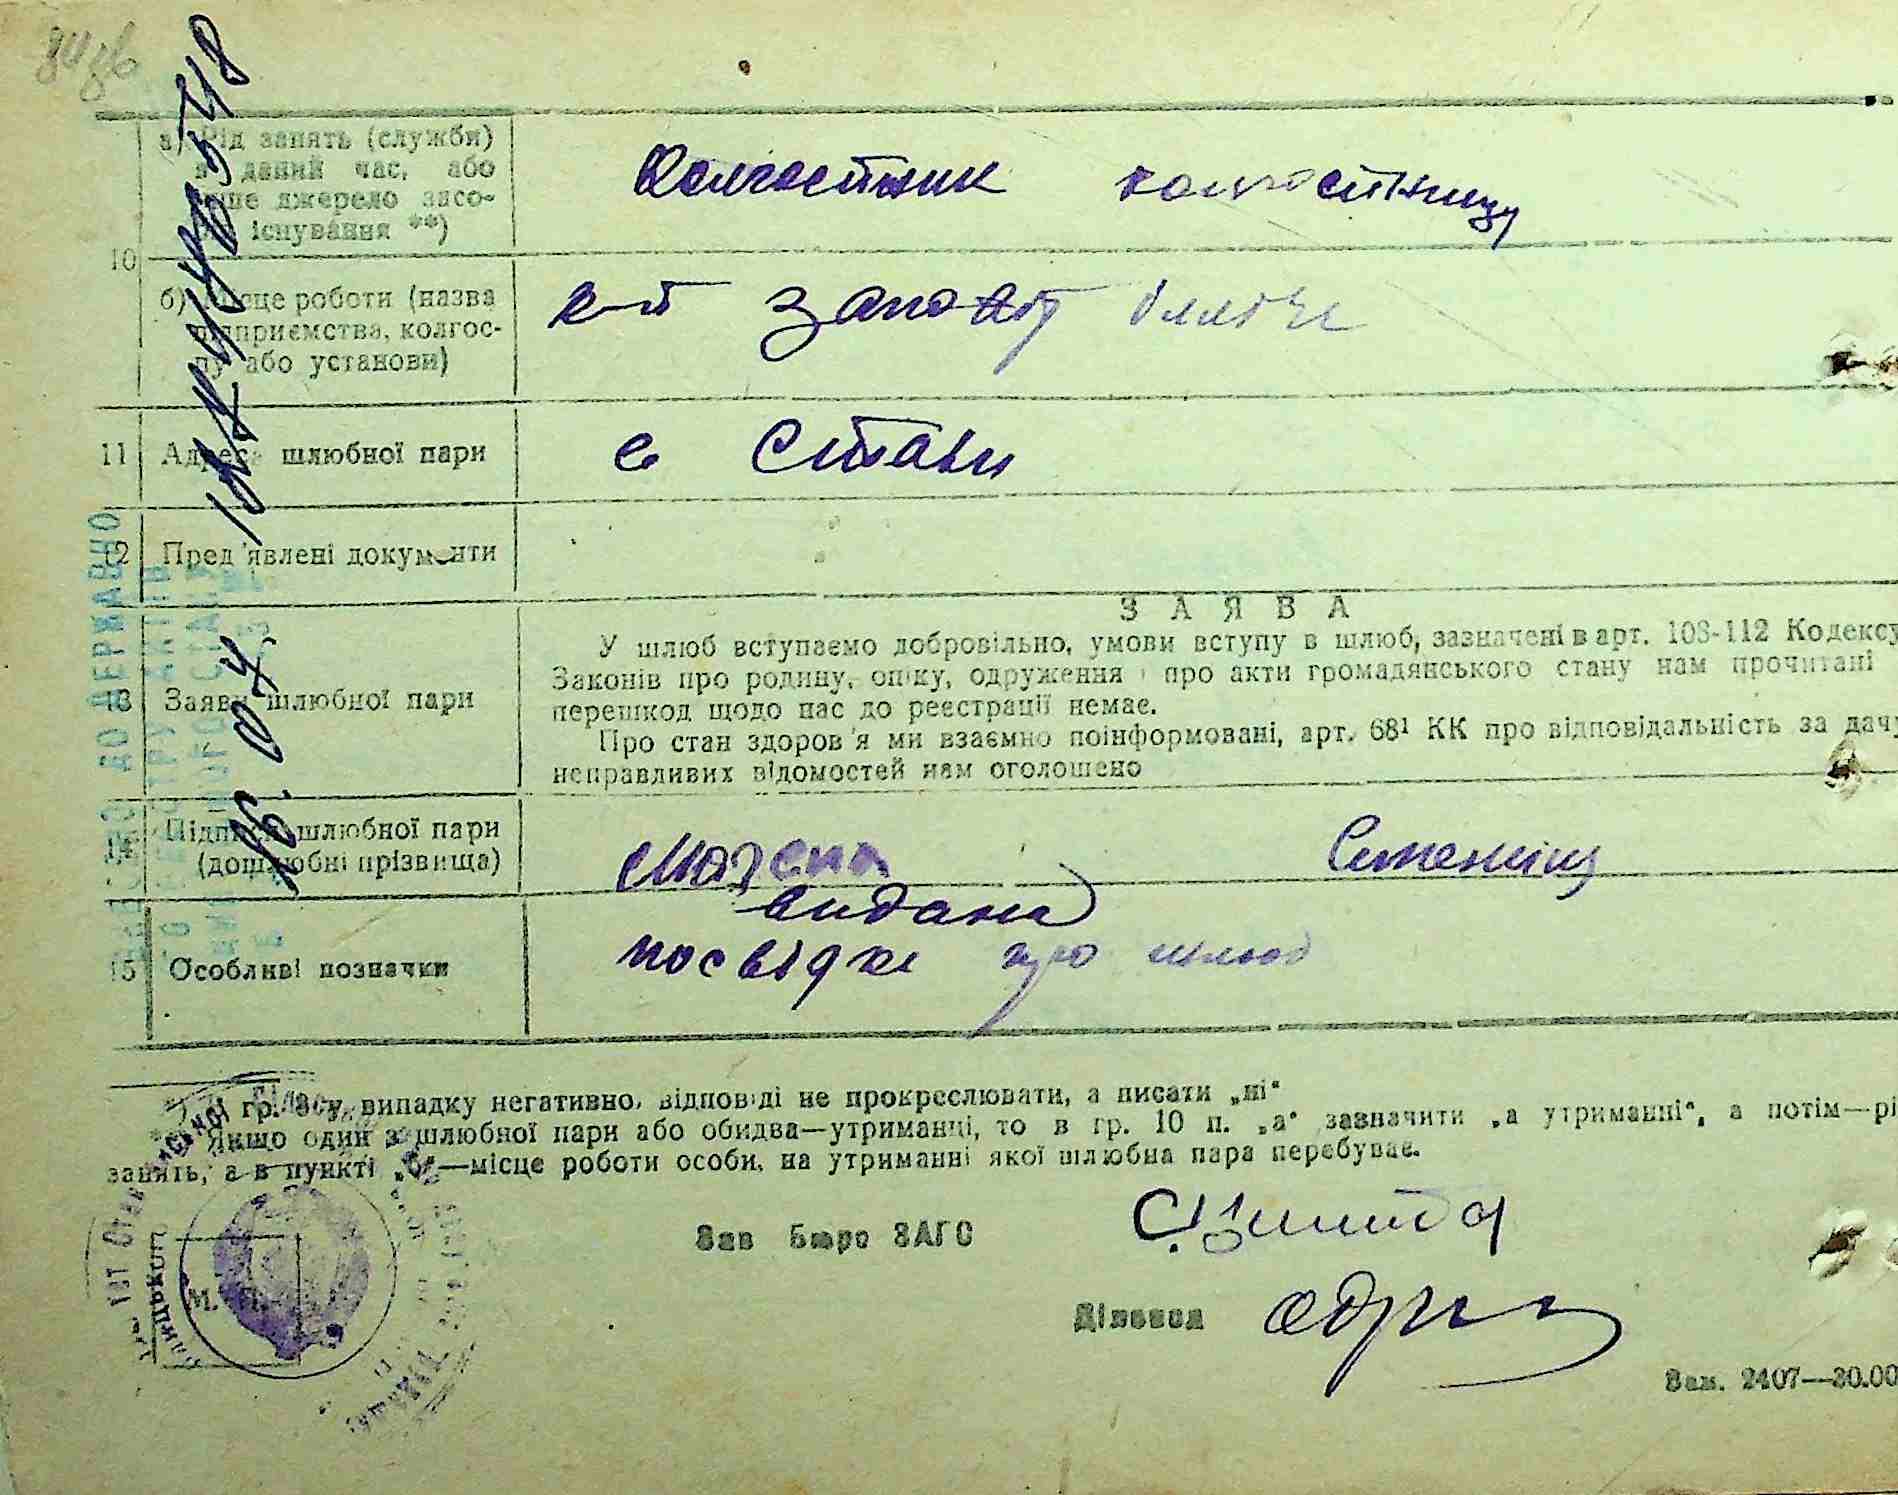 а) Рід занять (служби)
в даний час, або
інше джерело засо-
бів існування **)
Колгоспник колгоспниця
10
б) Місце роботи (назва
підприємства, колгос-
пу або установи)
к-п Заповіт Ілліча
11 Адреса шлюбної пари
с Стави
12 Пред'явлені документи
З А Я В А
13 Заява шлюбної пари
У шлюб вступаємо добровільно, умови вступу в шлюб, зазначені в арт. 108-112 Кодексу
Законів про родину, опіку, одруження і про акти громадянського стану нам прочитані
перешкод щодо нас до реєстрації немає.
Про стан здоров'я ми взаємно поінформовані, арт. 68¹ КК про відповідальність за дачу
неправдивих відомостей нам оголошено
14 Підписи шлюбної пари
(дошлюбні прізвища)
Мазепа
видана
15 Особливі позначки
посвідка про шлюб
гр. 8 у випадку негативно, відповіді не прокреслювати, а писати „ні“
Якщо один з шлюбної пари або обидва—утриманці, то в гр. 10 п. „а“ зазначити „а утриманні“, а потім—рі
занять, а в пункті „б“—місце роботи особи, на утриманні якої шлюбна пара перебуває.
Зав Бюро ЗАГС
М. П.
Діловод
Зам. 2407—30.00